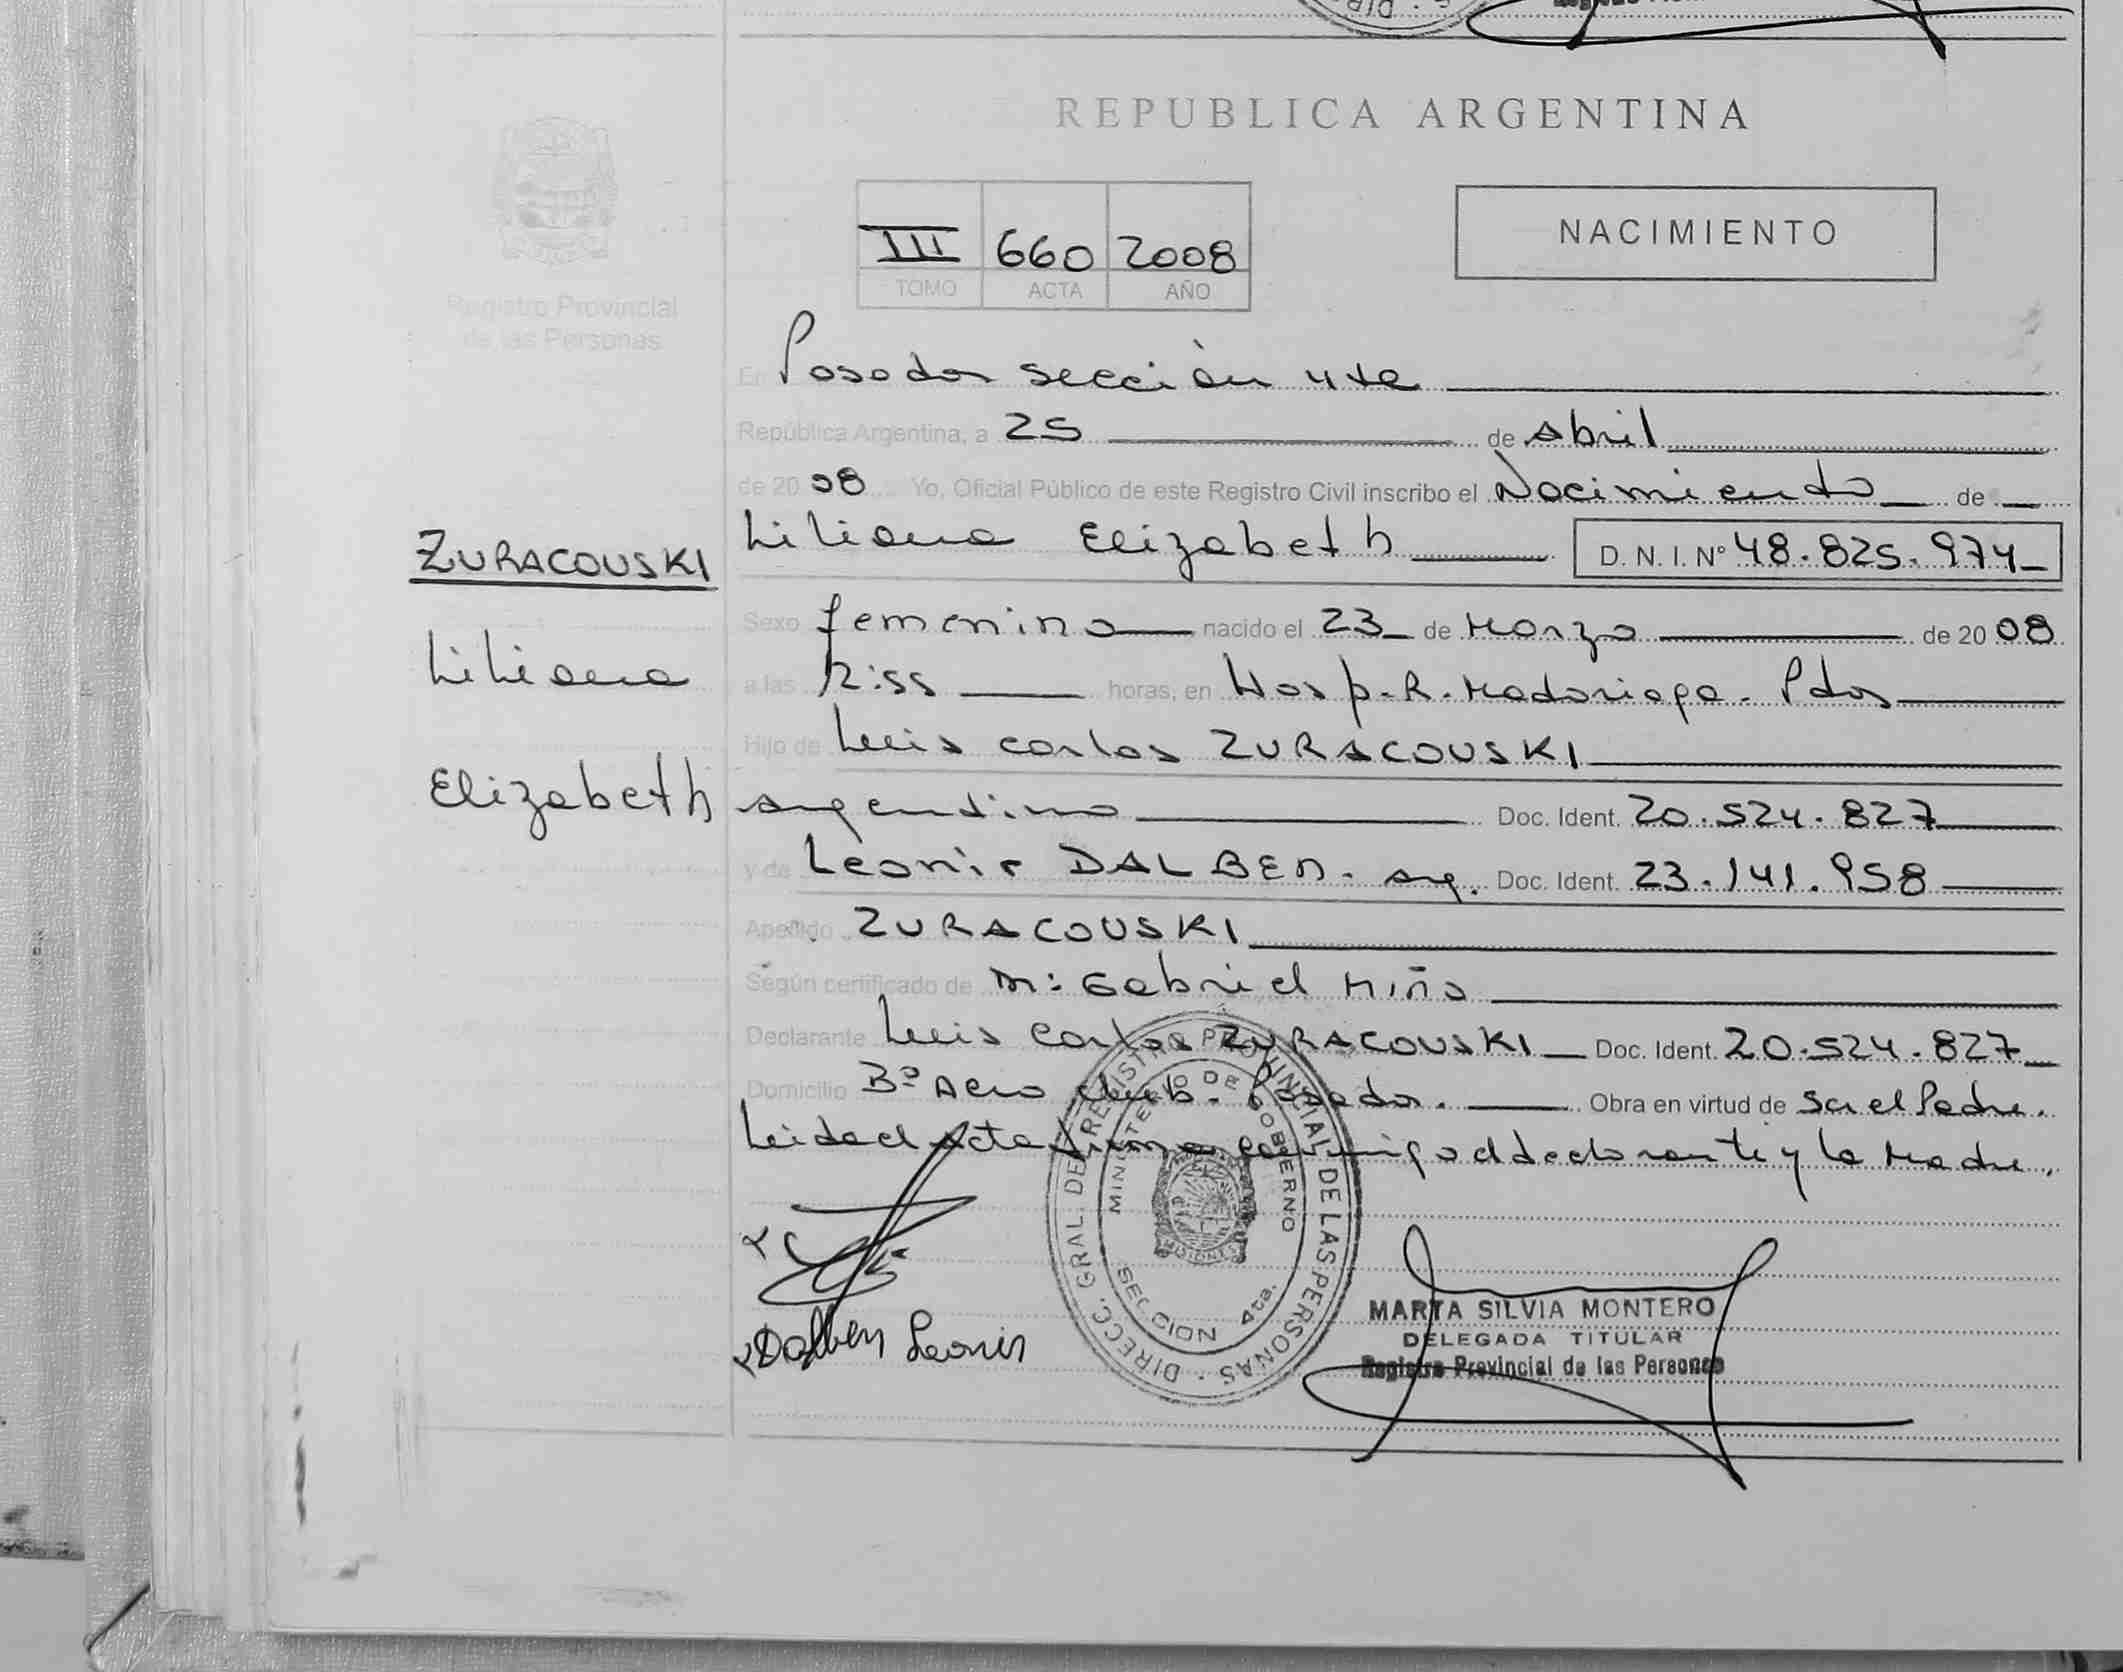 REPUBLICA ARGENTINA
NACIMIENTO
III 660 2008
TOMO ACTA AÑO
Registro Provincial
de las Personas
En Posadas sección 4ta
República Argentina, a 25 de Abril
de 2008 Yo, Oficial Público de este Registro Civil inscribo el Nacimiento de
Liliana Elizabeth D. N. I. Nº 48.825.974
ZURACOUSKI
Liliana
Elizabeth
Sexo femenino nacido el 23 de Marzo de 2008
a las 12:55 horas, en Hosp. R. Madariaga. Pdas
Hijo de Luis Carlos ZURACOUSKI
argentino Doc. Ident. 20.524.827
y de Leonir DALBEN. arg. Doc. Ident. 23.141.958
Apellido ZURACOUSKI
Según certificado de M: Gabriel Miño
Declarante Luis Carlos ZURACOUSKI Doc. Ident. 20.524.827
Domicilio Bº Aero Club. Posadas. Obra en virtud de Ser el Padre.
Leida el Acta firma conmigo el declarante y la Madre.
DIRECC. GRAL. DEL REGISTRO PROVINCIAL DE LAS PERSONAS
MINISTERIO DE GOBIERNO
MISIONES
SECCION 4ta.
Dalben Leonir
MARTA SILVIA MONTERO
DELEGADA TITULAR
Registro Provincial de las Personas